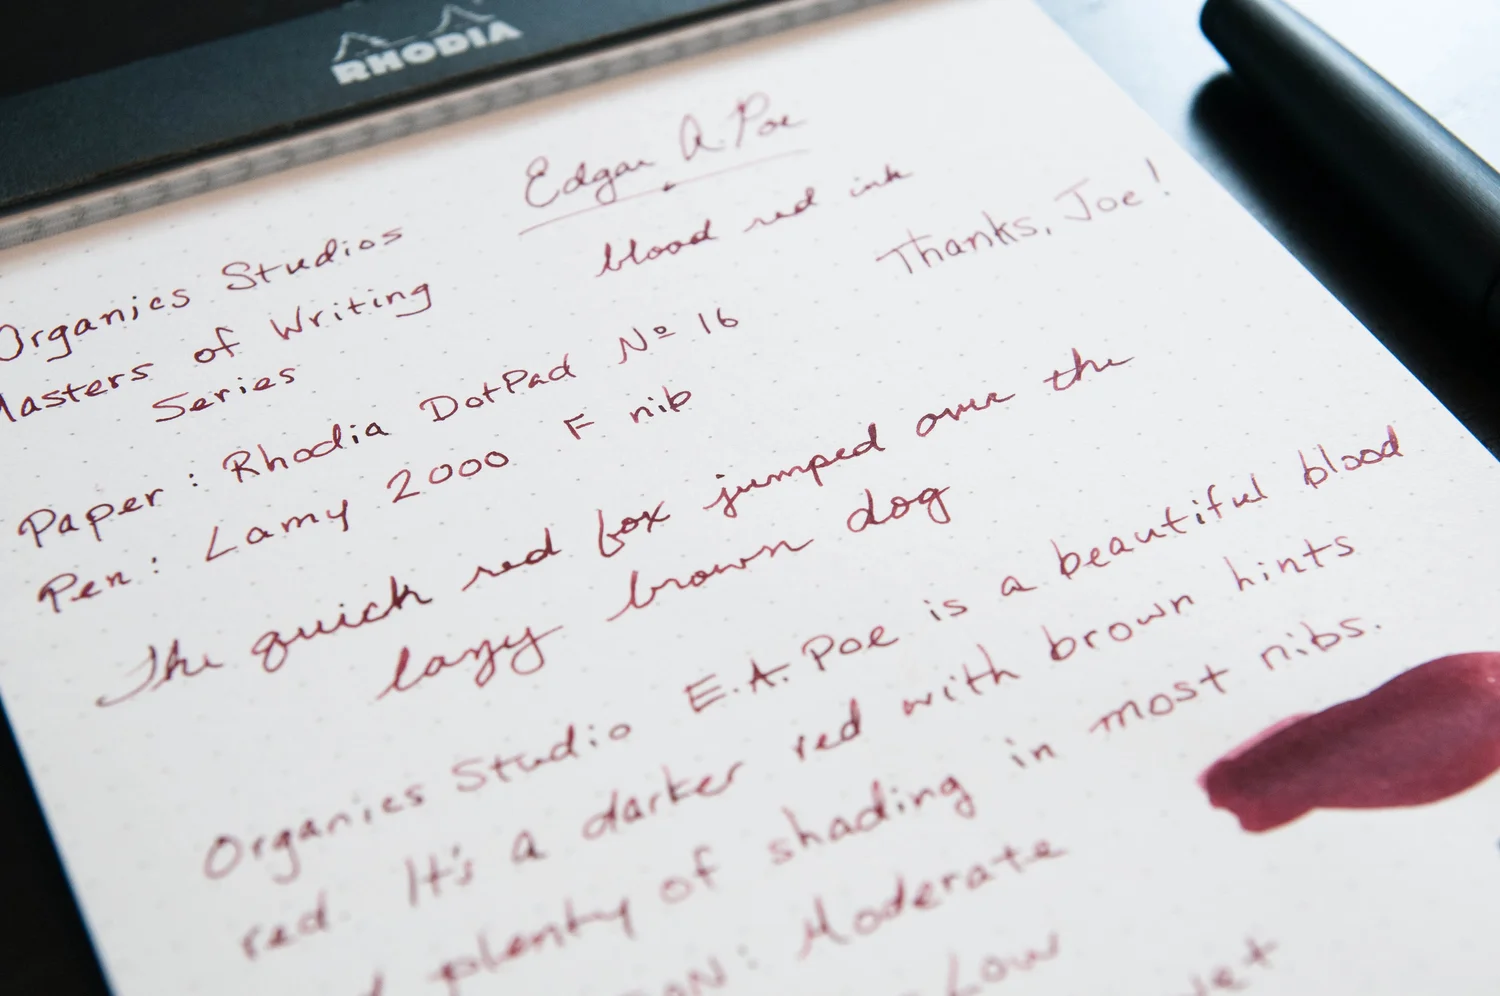 RHODIA
Edgar A. Poe
blood red ink
Thanks, Joe!
Organics Studios
Masters of Writing
Series
Paper: Rhodia DotPad Nº 16
Pen: Lamy 2000 F nib
The quick red fox jumped over the
lazy brown dog
Organics Studio E.A. Poe is a beautiful blood
red. It's a darker red with brown hints
plenty of shading in most nibs.
: Moderate
Low